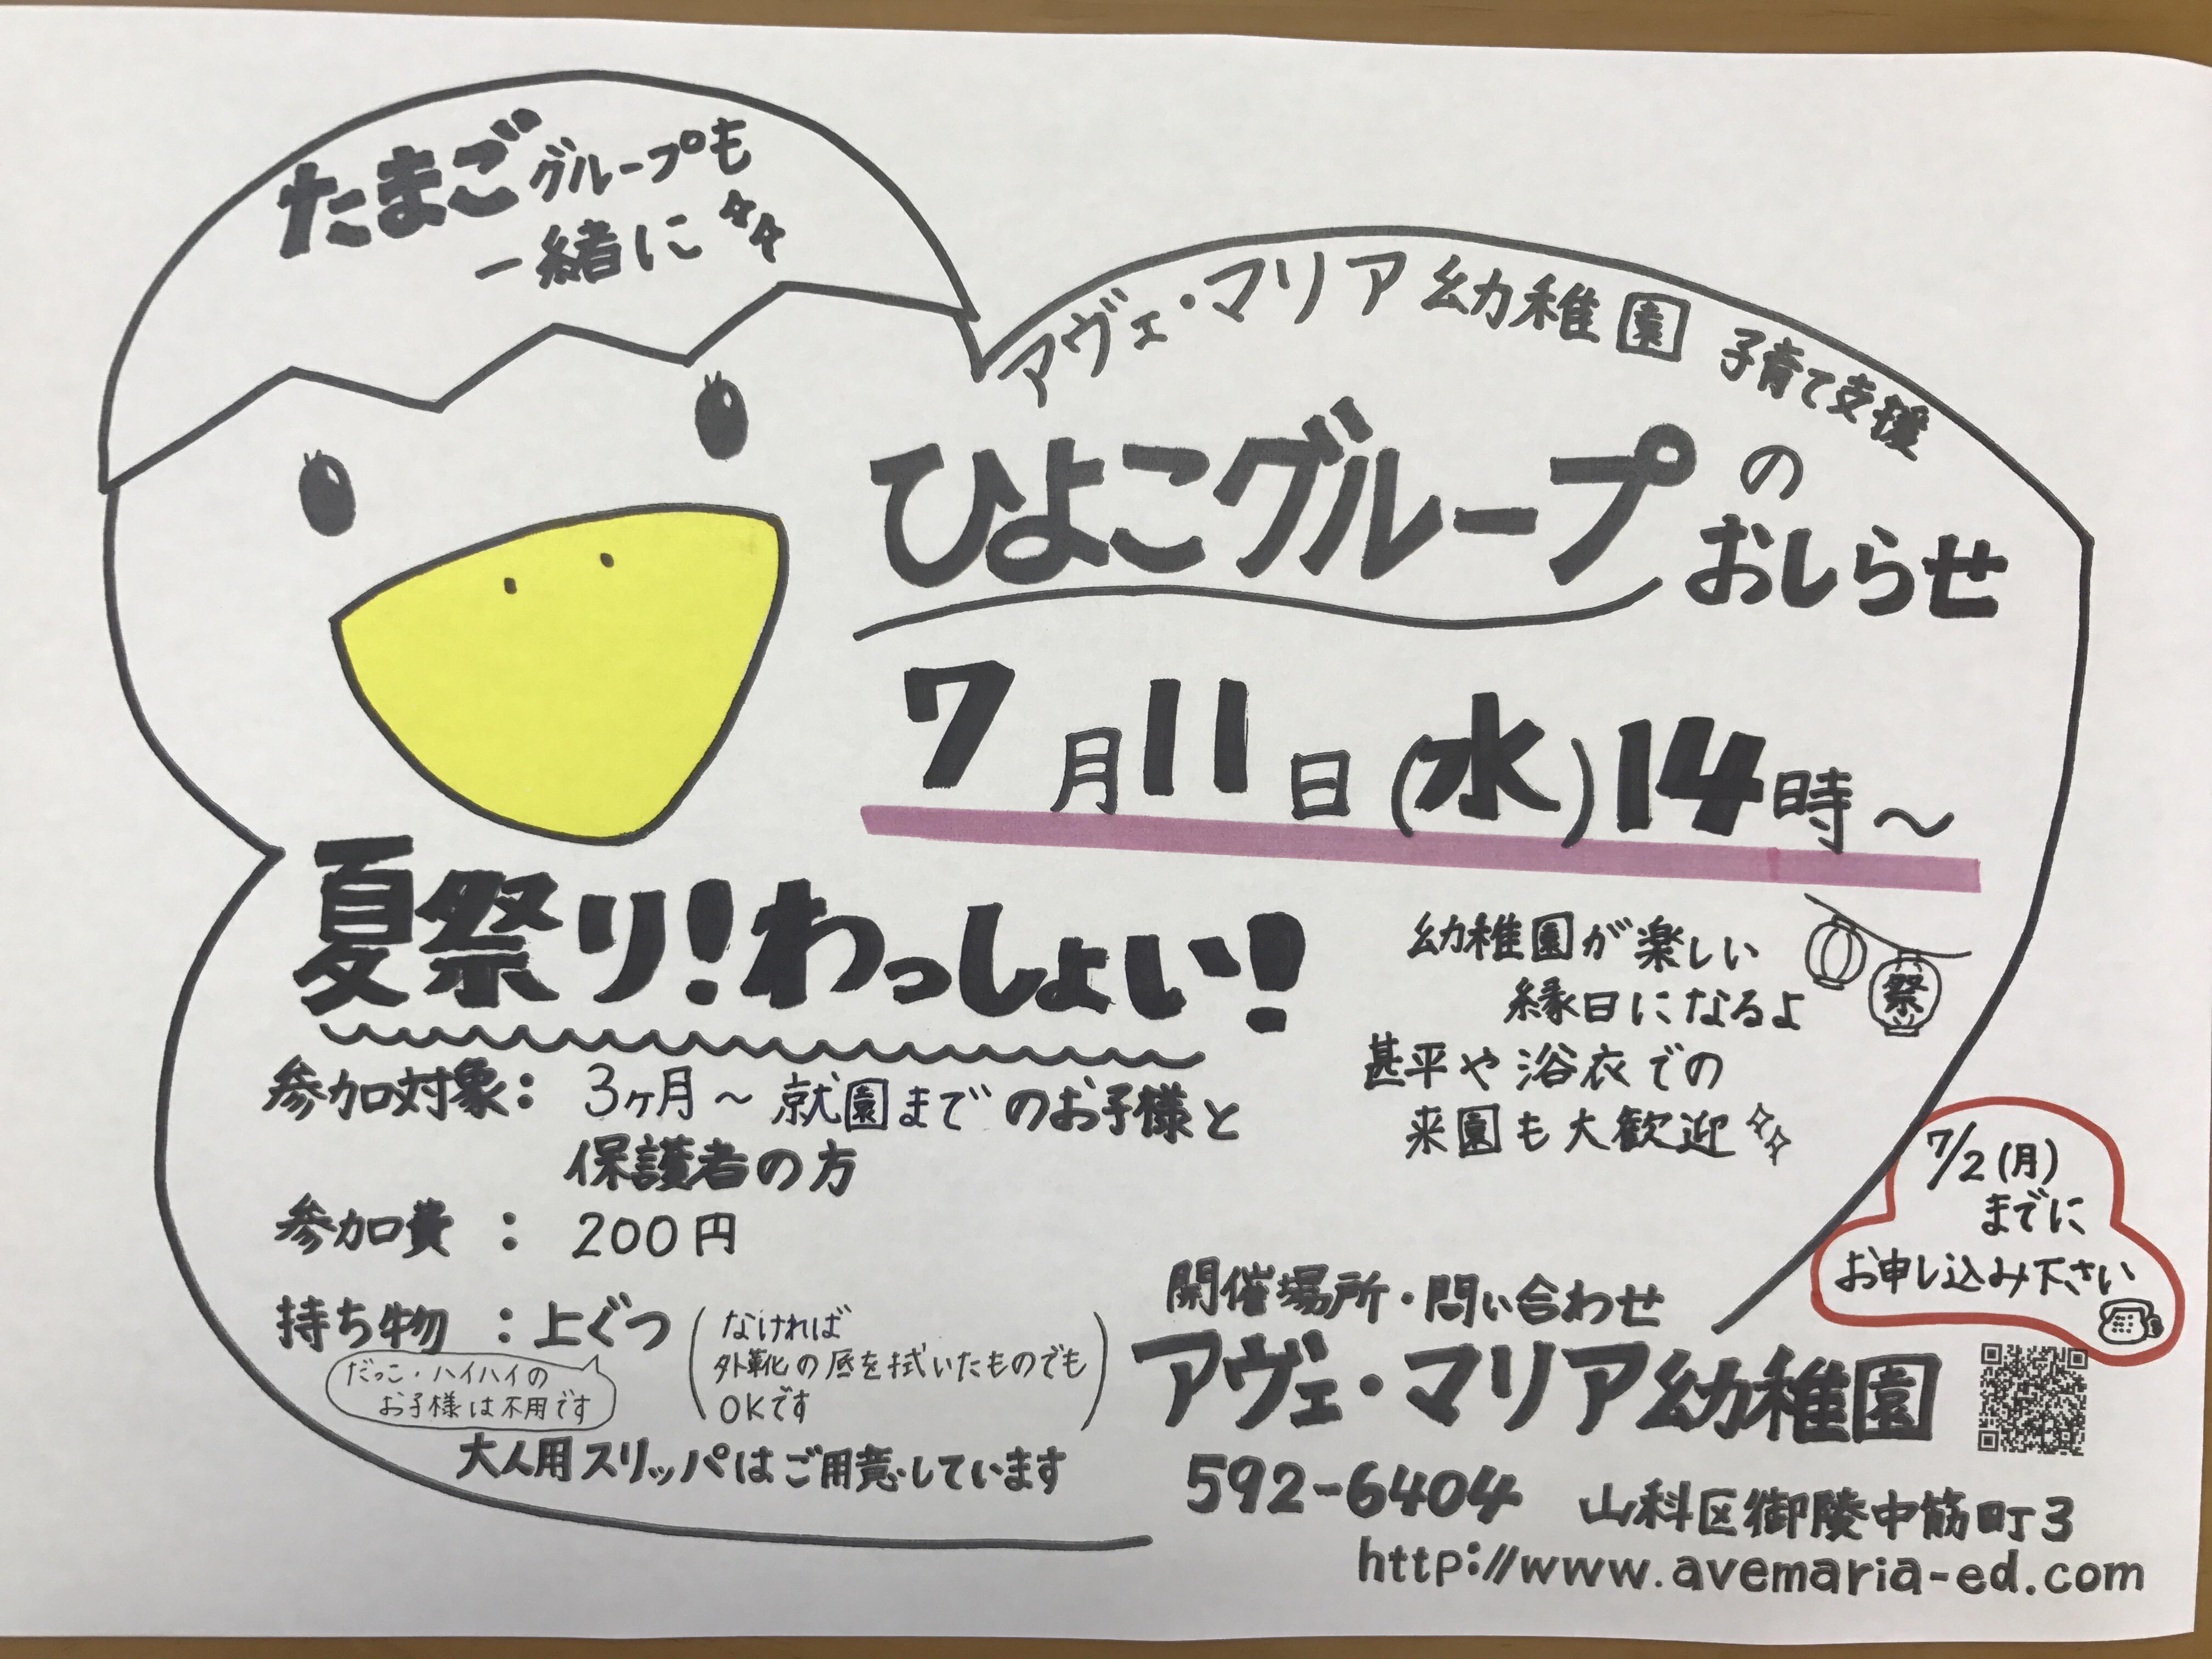 たまごグループも
一緒に
アヴェ・マリア幼稚園 子育て支援
ひよこグループの
おしらせ
7月11日(水)14時～
夏祭り!わっしょい!
幼稚園が楽しい
縁日になるよ
甚平や浴衣での
来園も大歓迎
祭
参加対象: 3ヶ月～就園までのお子様と
保護者の方
参加費 : 200円
持ち物 : 上ぐつ
(なければ
外靴の底を拭いたものでも
OKです)
だっこ・ハイハイの
お子様は不用です
大人用スリッパはご用意しています
7/2(月)
までに
お申し込み下さい
開催場所・問い合わせ
アヴェ・マリア幼稚園
592-6404 山科区御陵中筋町3
http://www.avemaria-ed.com